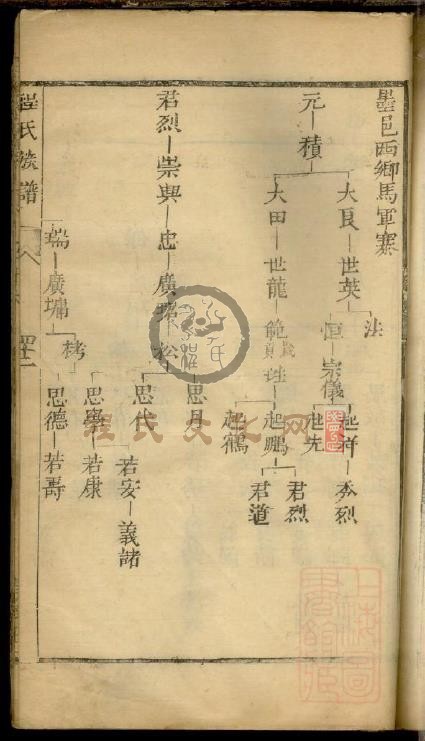 墨邑西鄉馬軍寨
元積
大良世英 法
恒宗儀
起祥秀烈
起先
大田世龍範
起鵬君烈
君道
起鶴
君烈崇興忠廣瑤松思月
思代若安義諸
瑞廣墉栲思學若康
思德若壽
程氏族譜
程氏文化网
上海圖書館藏